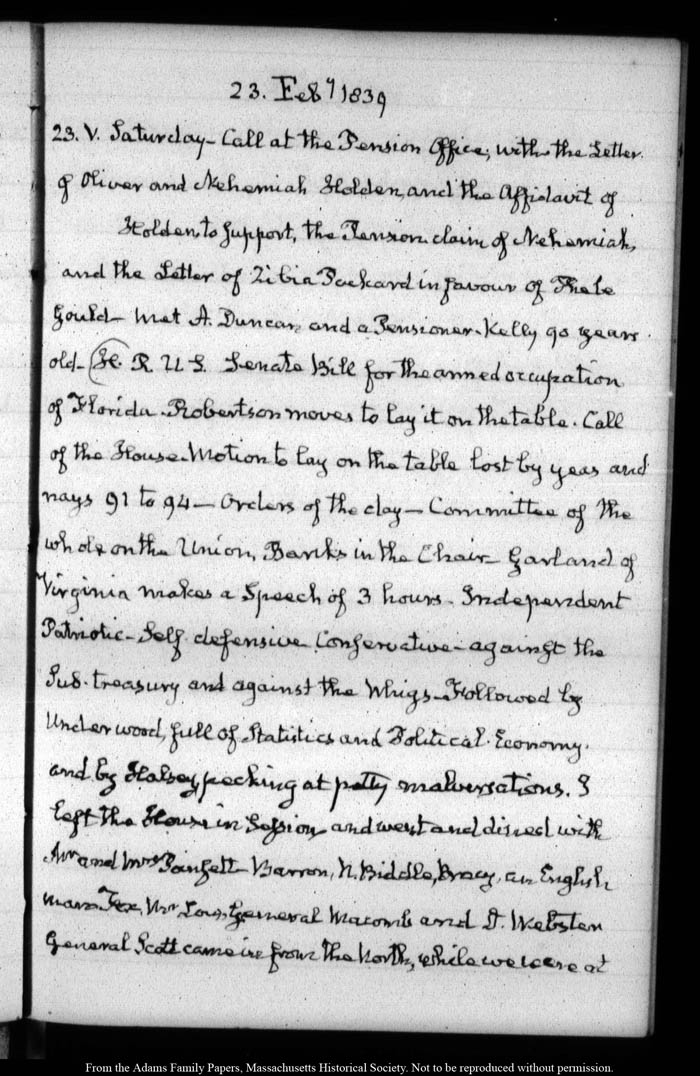 23. Feby 1839
23. V. Saturday – Call at the Pension Office, with the Letter
of Oliver and Nehemiah Holden, and the Affidavit of
Holden, to support, the Pension claim of Nehemiah,
and the Letter of Zibia Packard in favour of Thebe
Gould – Met A. Duncan and a Pensioner – Kelly 90 years
old – H. R. U. S. Senate Bill for the armed occupation
of Florida. Robertson moves to lay it on the table. Call
of the House – Motion to lay on the table lost by yeas and
nays 91 to 94 – Orders of the day – Committee of the
whole on the Union, Banks in the Chair – Garland of
Virginia makes a Speech of 3 hours – Independent
Patriotic – Self-defensive Conservative – against the
Sub-treasury and against the Whigs – Followed by
Underwood, full of Statistics and Political Economy.
and by Halsey, pecking at petty malversations. I
left the House in Session and went and dined with
Mr and Mrs Poinsett – Barron, N. Biddle, an English
man Fox, Mr General Macomb and D. Webster
General Scott came in from the North, while we were at
From the Adams Family Papers, Massachusetts Historical Society. Not to be reproduced without permission.